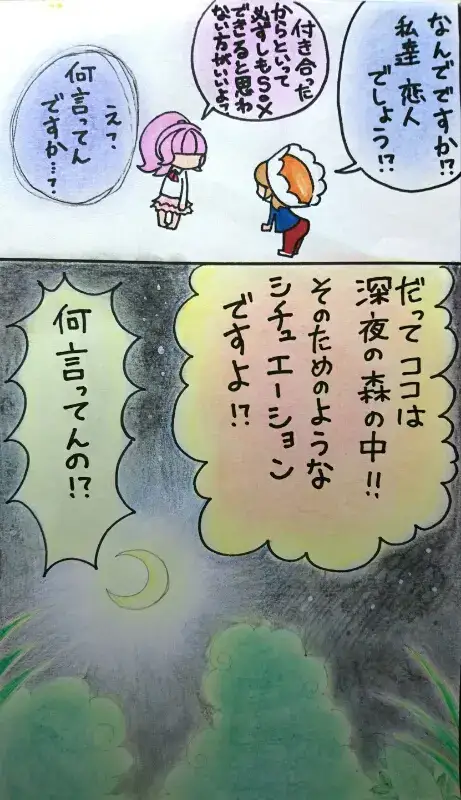 なんでですか!?
私達 恋人
でしょう!?
付き合った
からといって
必ずしもSox
できると思わ
ない方がいいよ?
え?
何言ってん
ですか…?
だってココは
深夜の森の中!!
そのためのような
シチュエーション
ですよ!?
何言ってんの!?